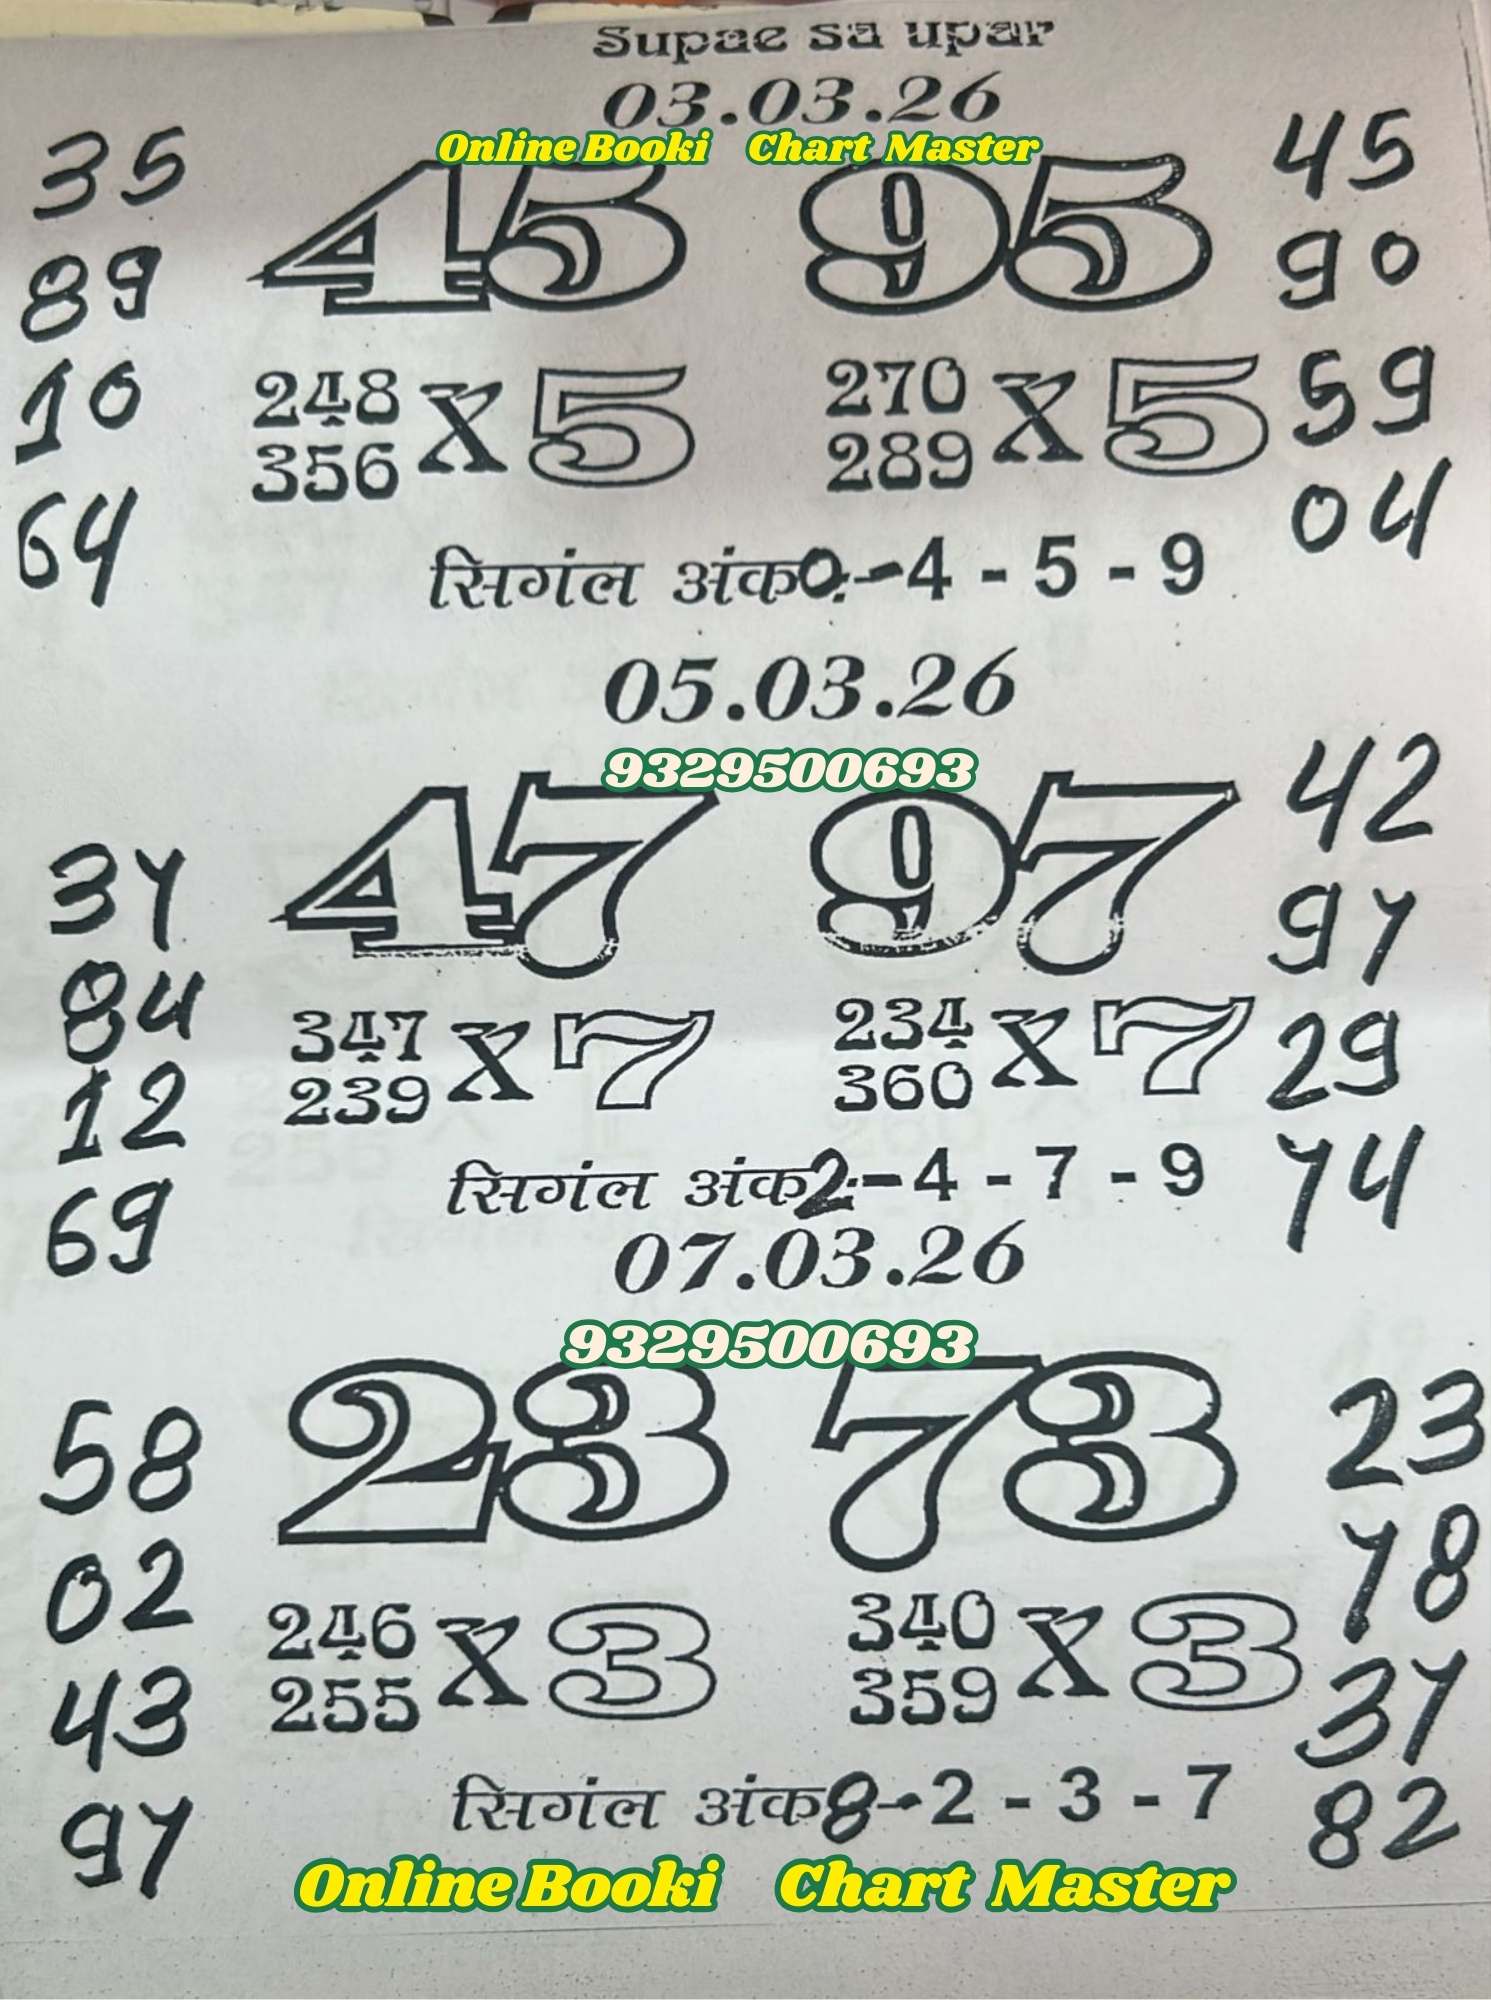 Supae sa upar
03.03.26
Online Booki Chart Master
35 45 95 45
89 90
10 248 X 5 270 X 5 59
356 289
64 04
सिगंल अंक0:-4 - 5 - 9
05.03.26
9329500693
47 97 42
37 97
84 347 X 7 234 X 7 29
12 239 360
74
69 सिगंल अंक2:-4 - 7 - 9
07.03.26
9329500693
58 23 73 23
02 78
246 X 3 340 X 3
43 255 359 37
97 सिगंल अंक8-2 - 3 - 7 82
Online Booki Chart Master